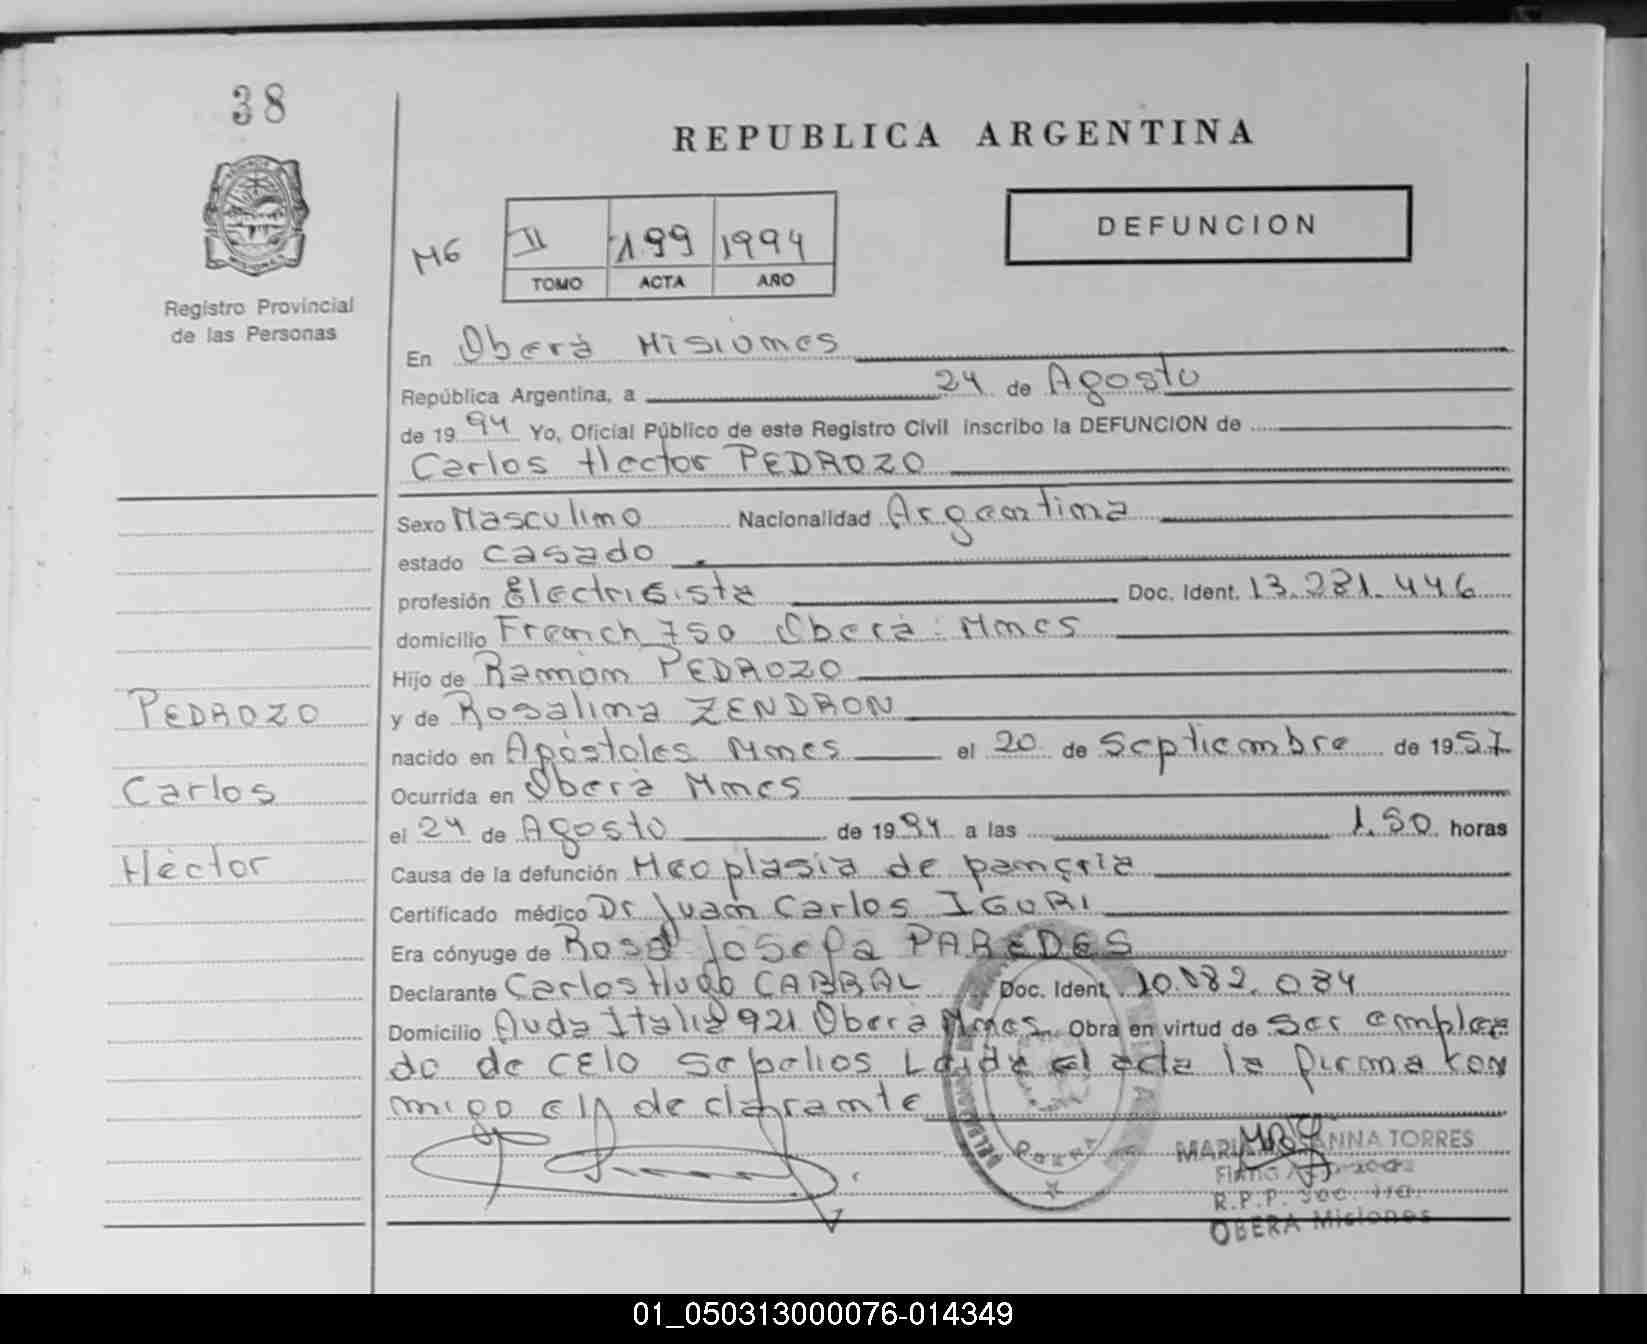 38
REPUBLICA ARGENTINA
DEFUNCION
M6
II 199 1994
TOMO ACTA AÑO
Registro Provincial
de las Personas
En Oberá Misiones
República Argentina, a 24 de Agosto
de 19 94 Yo, Oficial Público de este Registro Civil inscribo la DEFUNCION de
Carlos Hector PEDROZO
Sexo Masculino Nacionalidad Argentina
estado casado
profesión Electricista Doc. Ident. 13.281.446
domicilio French 750 Oberá Mnes
Hijo de Ramon PEDROZO
PEDROZO
y de Rosalina ZENDRON
nacido en Apóstoles Mnes el 20 de Septiembre de 1957
Carlos
Ocurrida en Oberá Mnes
el 24 de Agosto de 1994 a las 1.50 horas
Héctor
Causa de la defunción Neoplasia de
Certificado médico Dr Juan Carlos IGURI
Era cónyuge de Rosa Josefa PAREDES
Declarante Carlos Hugo CABRAL Doc. Ident. 10.082.084
Domicilio Avda Italia 921 Oberá Mnes Obra en virtud de ser emplea
do de CELO Sepelios Leida el acta la firma con
migo el declarante
TORRES
R.P.P. Soc.
OBERA Misiones
01_050313000076-014349